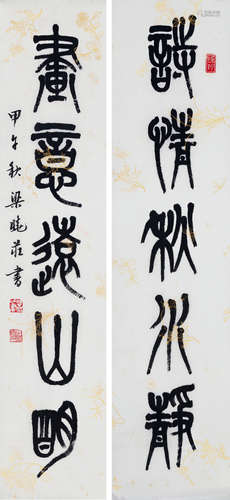 詩情秋水靜
畫意遠山明
甲午秋梁曉莊書